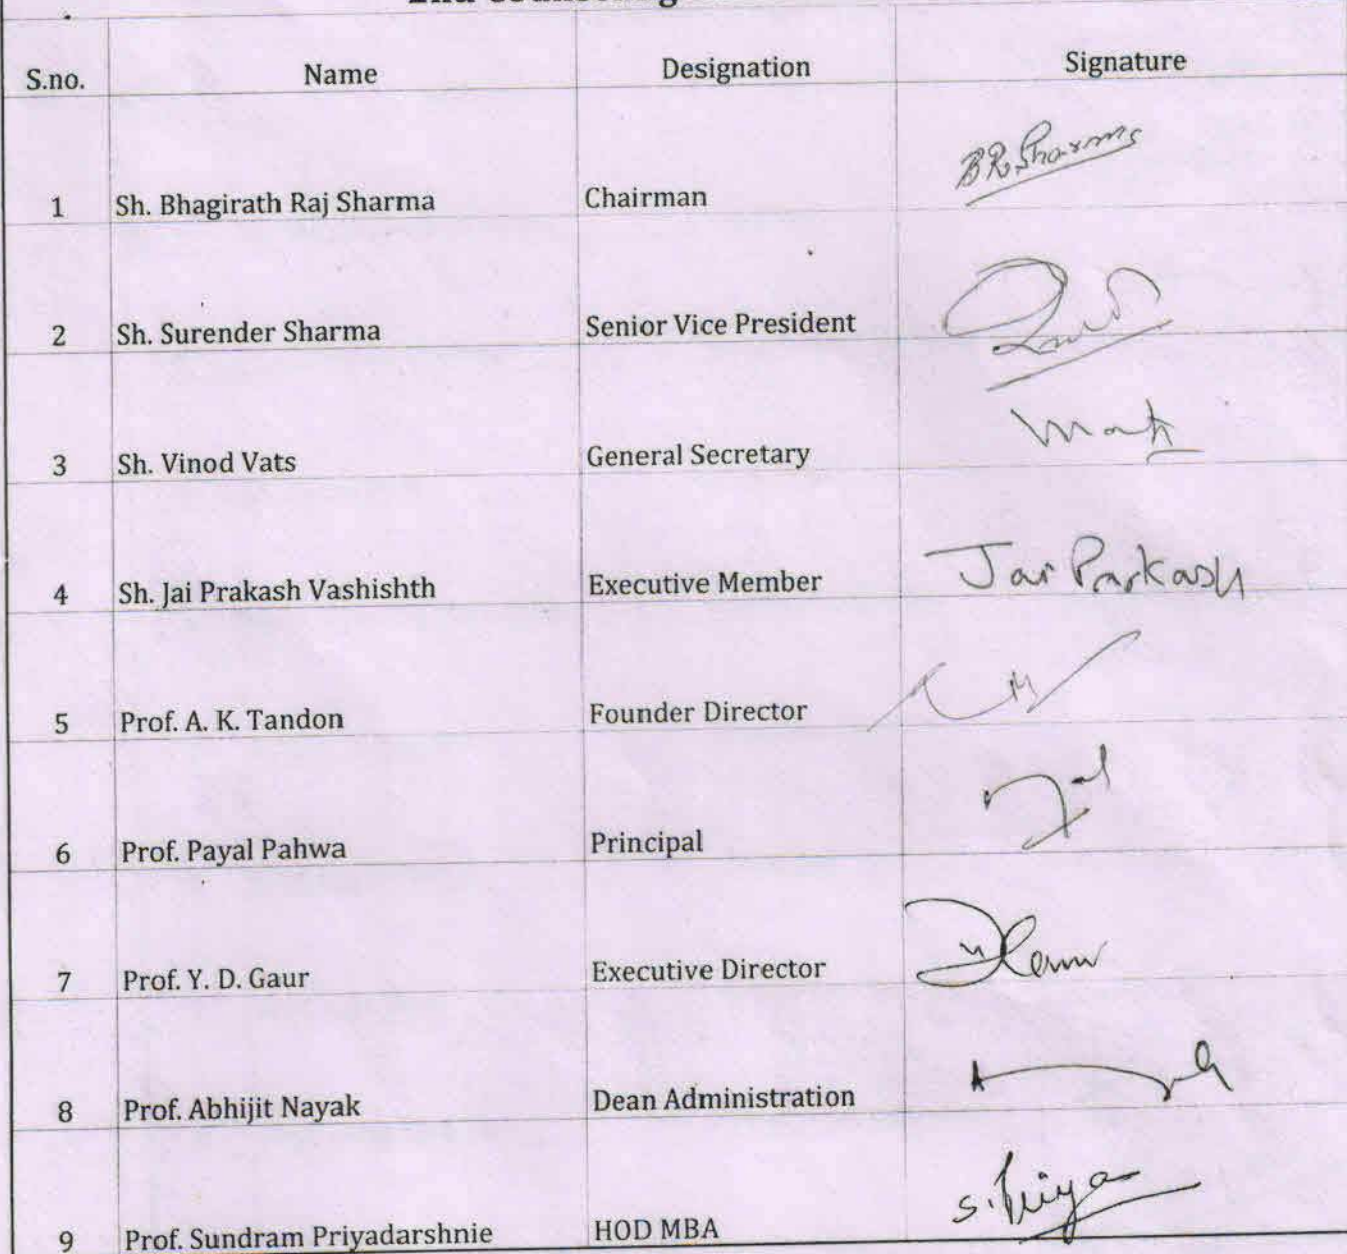 S.no. Name Designation Signature
1 Sh. Bhagirath Raj Sharma Chairman BR Sharma
2 Sh. Surender Sharma Senior Vice President
3 Sh. Vinod Vats General Secretary
4 Sh. Jai Prakash Vashishth Executive Member Jai Parkash
5 Prof. A. K. Tandon Founder Director
6 Prof. Payal Pahwa Principal
7 Prof. Y. D. Gaur Executive Director
8 Prof. Abhijit Nayak Dean Administration
9 Prof. Sundram Priyadarshnie HOD MBA S. Priya